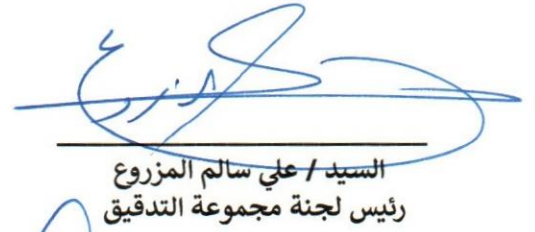 السيد / علي سالم المزروع
رئيس لجنة مجموعة التدقيق